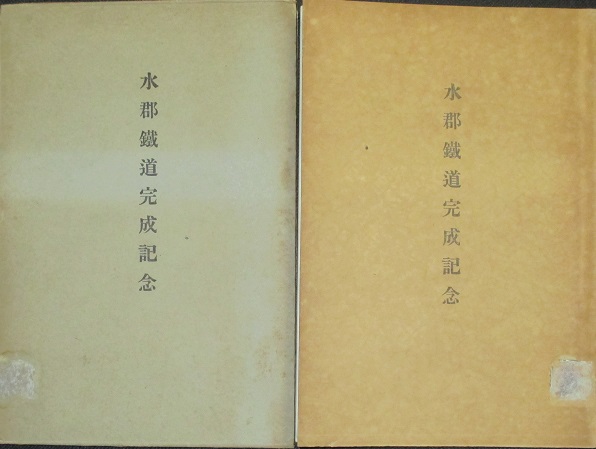 水郡鐵道完成記念
水郡鐵道完成記念